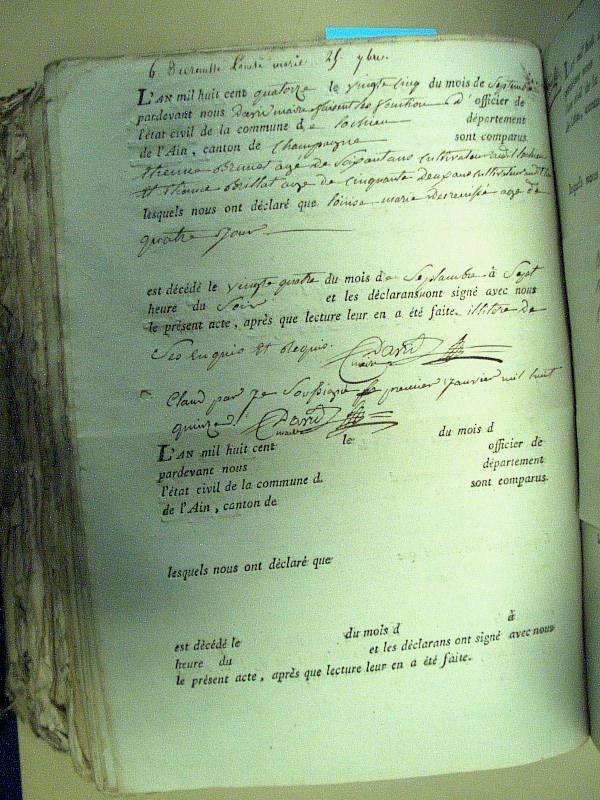 6 Decrouse Louise marie 25 7bre.
L'AN mil huit cent quatorze le vingt cinq du mois de Septembre
pardevant nous David maire faisant les fonction d' officier de
l'état civil de la commune de Lochieu département
de l'Ain, canton de Champagne sont comparus.
Etienne Brunet age de Soixant ans cultivateur audit lochieu
et Etienne Brillat age de cinquante deux ans cultivateur audit lieu
lesquels nous ont déclaré que louise marie age de
quatre Jour
est décédé le vingt quatre du mois de Septambre à Sept
heure du Soir et les déclarans ont signé avec nous
le présent acte, après que lecture leur en a été faite. illitere de
Ses enquis et Requis. David maire
Claus par Je Soussigné le premier Janvier mil huit
quinze. David maire
L'AN mil huit cent le du mois d
pardevant nous officier de
l'état civil de la commune d. département
de l'Ain, canton de sont comparus.
lesquels nous ont déclaré que
est décédé le du mois d à
heure du et les déclarans ont signé avec nous
le présent acte, après que lecture leur en a été faite.